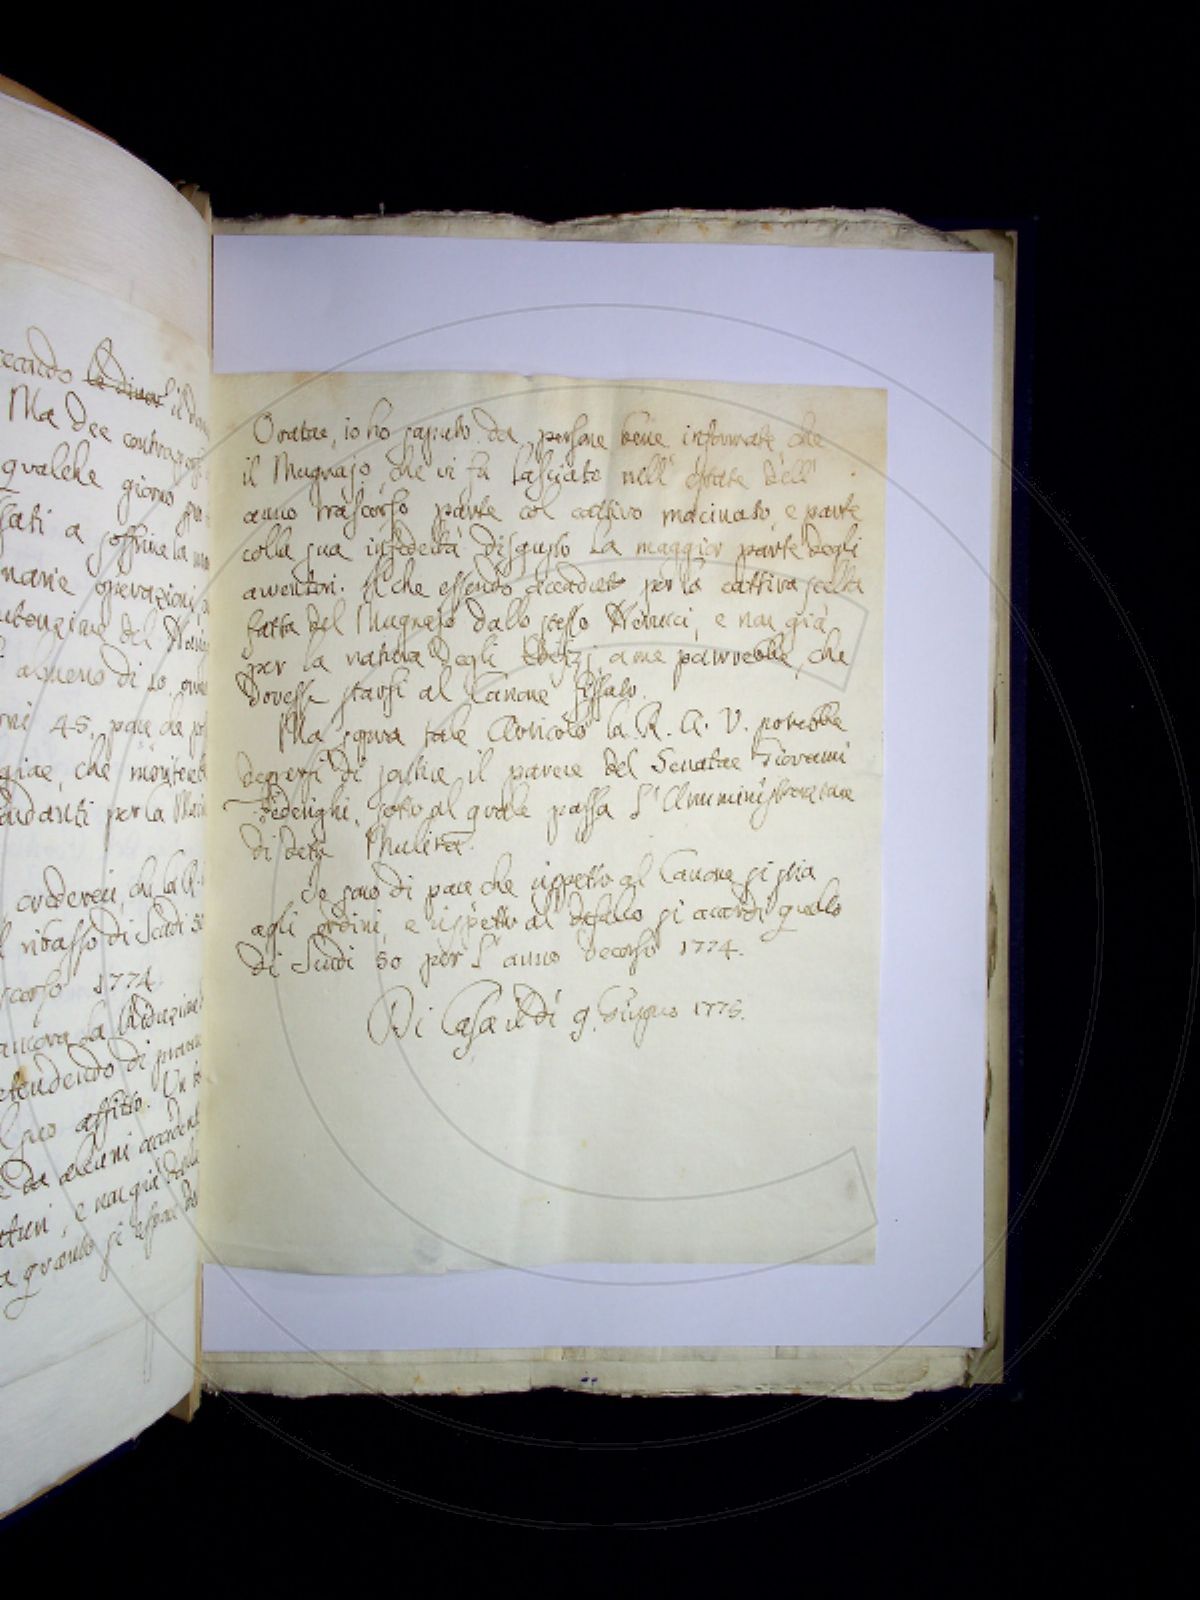 ceardo il dan
Ma dee contrapporsi
qualche giorno
sati a soffrire la
narie operazioni,
del
almeno di 10.
ni 45. pare che
giae, che
audanti per la
crederei, che la R.
l ribasso di Scudi 50
scorso 1774.
ancora la riduzione
etendendo di
l suo affitto. Un
e da alcuni accident
e non già dalla
a quanto si
Oratore, io ho saputo da persone bene informate, che
il Mugnajo, che vi fu lasciato nell' estate dell'
anno trascorso parte col cattivo macinato, e parte
colla sua infedeltà disgustò la maggior parte degli
avventori. Il che essendo acceduto per la cattiva scelta
fatta del Mugnajo dallo stesso Nerucci, e non già
per la natura degli a me parrebbe, che
dovesse starsi al Canone fissato.
Ma sopra tale Articolo la R. A. V. potrebbe
degnarsi di sentire il parere del Senatore Giovanni
Federighi, sotto al quale passa l' Amministrazione
di detti Mulini.
Io sono di parere che rispetto al Canone si stia
agli ordini, e rispetto al defalco si accordi quello
di Scudi 50 per l' anno decorso 1774.
Di Casa il dì 9. Giugno 1775.